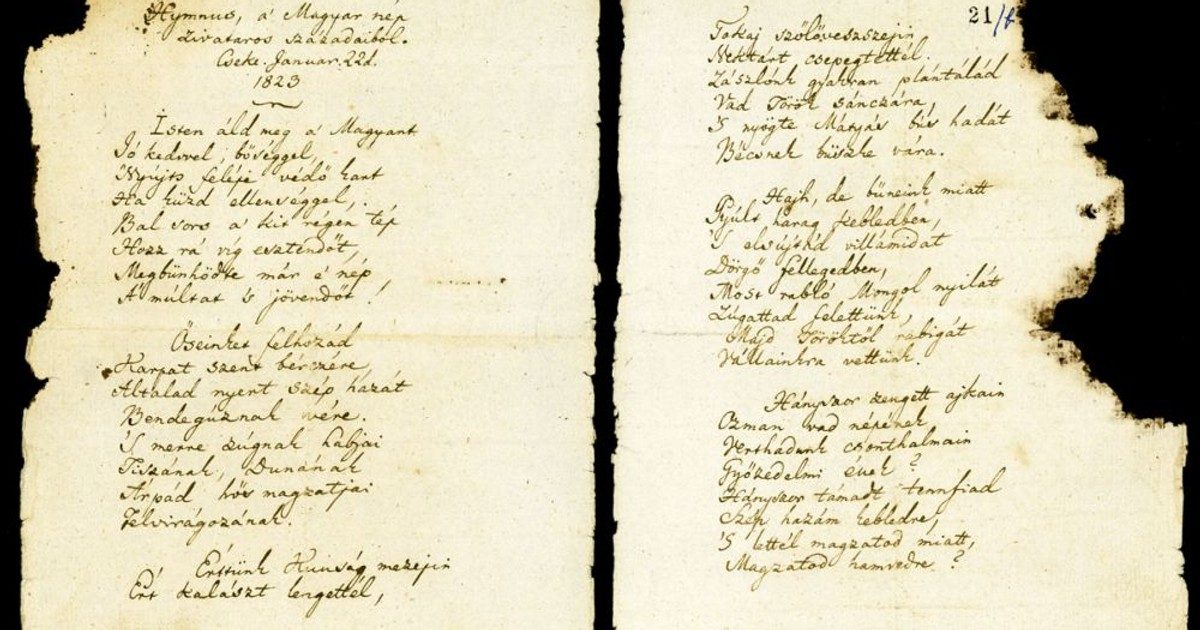 Hymnus, a' Magyar nép
zivataros századaiból.
Cseke. Januar. 22d.
1823
Isten áld meg a' Magyart
Jó kedvvel, bőséggel,
Nyújts feléje védő kart
Ha küzd ellenséggel,
Bal sors a' kit régen tép
Hozz rá víg esztendőt,
Megbűnhödte már e' nép
A' múltat 's jövendőt!
Őseinket felhozád
Kárpát szent bérczére,
Általad nyert szép hazát
Bendegúznak vére.
'S merre zúgnak habjai
Tiszának, Dunának
Árpád hős magzatjai
Felvirágozának.
Értünk Kunság mezejin
Ért kalászt lengettél,
21/b
Tokaj szőlőveszszejin
Nektárt csepegtettél.
Zászlónk gyakran plántálád
Vad Török sánczára,
'S nyögte Mátyás bús hadát
Bécsnek büszke vára.
Hajh, de bűneink miatt
Gyúlt harag kebledben,
'S elsújtád villámidat
Dörgő fellegedben,
Most rabló Mongol nyilát
Zúgattad felettünk,
Majd Töröktől rabigát
Vállainkra vettünk.
Hányszor zengett ajkain
Ozman vad népének
Vert hadunk csonthalmain
Győzedelmi ének?
Hányszor támadt tennfiad
Szép hazám kebledre,
'S lettél magzatod miatt,
Magzatod hamvedre?